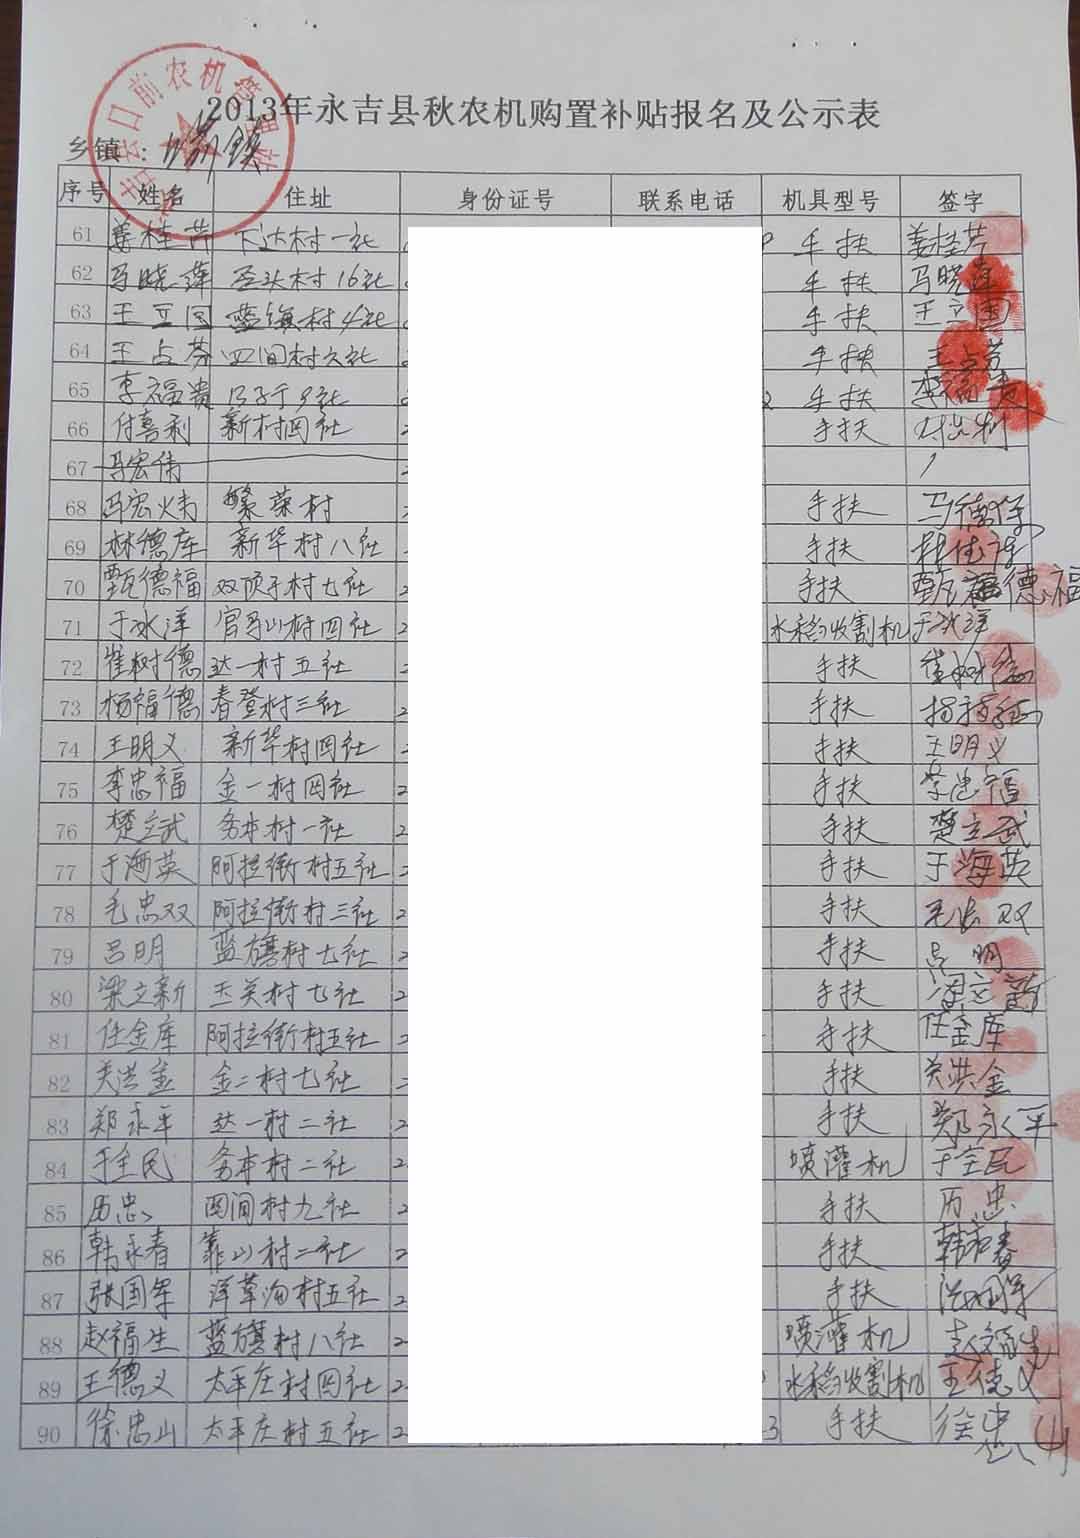 2013年永吉县秋农机购置补贴报名及公示表
乡镇：
序号 姓名 住址 身份证号 联系电话 机具型号 签字
61 姜桂芹 下达村一社 手扶 姜桂芹
62 马晓萍 16社 手扶 马晓萍
63 王立国 蓝旗村4社 手扶 王立国
64 王占芬 四间村六社 手扶 王占芬
65 李福贵 9社 手扶 李福贵
66 付喜利 新村四社 手扶 付喜利
67 冯宏伟
68 冯宏炜 繁荣村 手扶
69 林德库 新华村八社 手扶 林德库
70 甄德福 双顶子村七社 手扶 甄福德福
71 于冰洋 官马山村四社 水稻收割机 于冰洋
72 崔树德 达一村五社 手扶 崔树德
73 杨福德 春登村三社 手扶 杨福德
74 王明义 新华村四社 手扶 王明义
75 李忠福 金一村四社 手扶 李忠福
76 楚立武 务本村一社 手扶 楚立武
77 于海英 阿拉街村五社 手扶 于海英
78 毛忠双 阿拉街村三社 手扶 毛忠双
79 吕明 蓝旗村七社 手扶 吕明
80 梁立新 玉英村七社 手扶 梁立新
81 任金库 阿拉街村五社 手扶 任金库
82 关洪金 金二村七社 手扶 关洪金
83 郑永平 达一村二社 手扶 郑永平
84 于全民 务本村二社 喷灌机 于全民
85 历忠 四间村九社 手扶 历忠
86 韩永春 靠山村二社 手扶 韩永春
87 张国军 洋草沟村五社 手扶 张国军
88 赵福生 蓝旗村八社 喷灌机 赵福生
89 王德义 太平庄村四社 水稻收割机 王德义
90 徐忠山 太平庄村五社 手扶 徐忠山